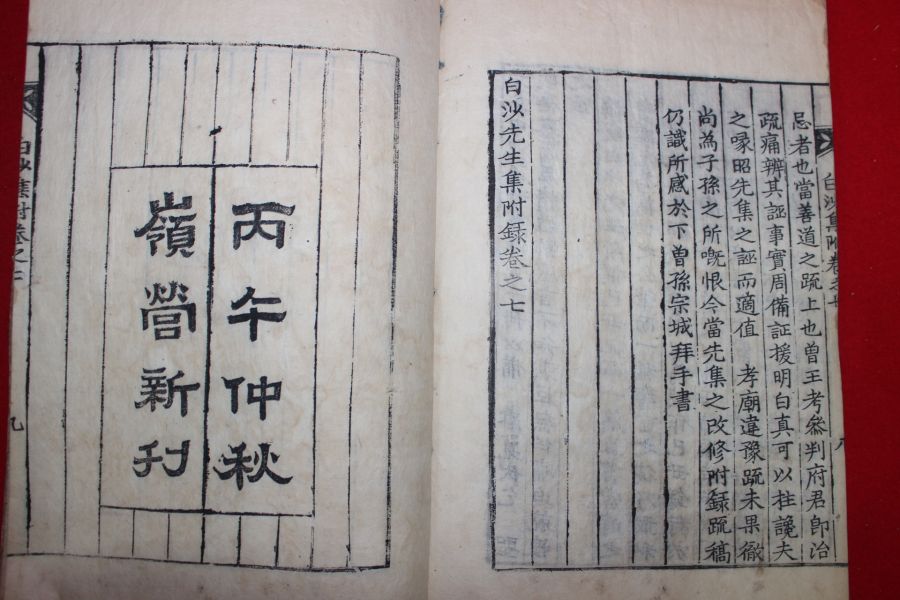 白沙集附卷之七 八
忌者也當善道之疏上也曾王考叅判府君卽治
疏痛辨其誣事實周備証援明白真可以拄讒夫
之喙昭先集之誣而適值 孝廟違豫疏未果徹
尚為子孫之所嘅恨今當先集之改修附録疏稿
仍識所感於下曾孫宗城拜手書
白沙先生集附録卷之七
丙午仲秋
嶺營新刊
白沙集附卷之七